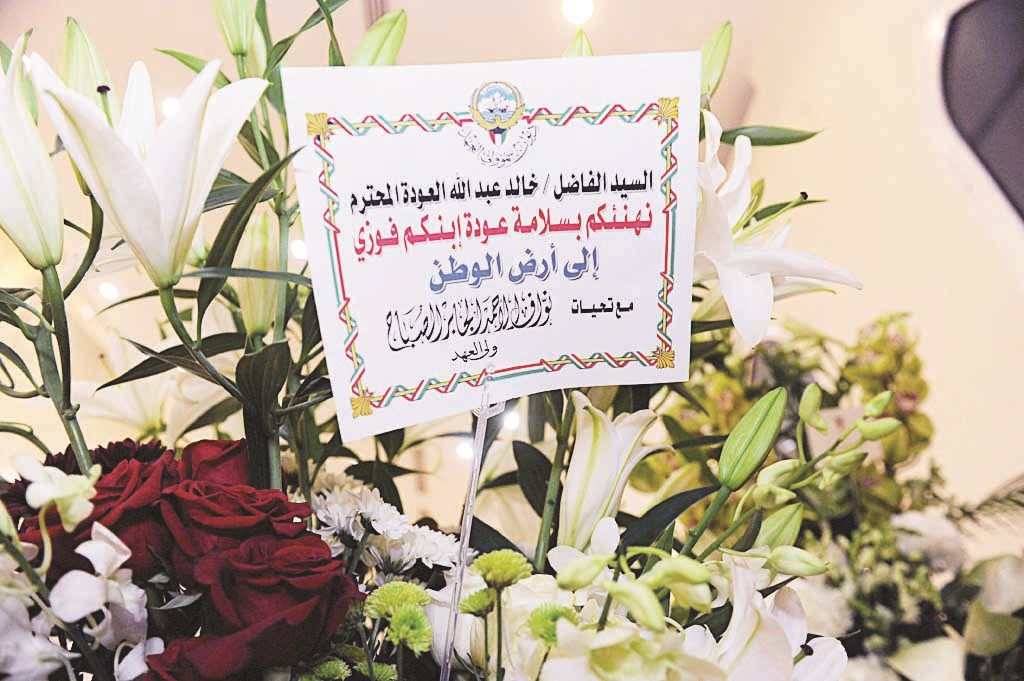 السيد الفاضل / خالد عبد الله العودة المحترم
نهنئكم بسلامة عودة إبنكم فوزي
إلى أرض الوطن
مع تحيات نواف الأحمد الجابر الصباح
ولي العهد